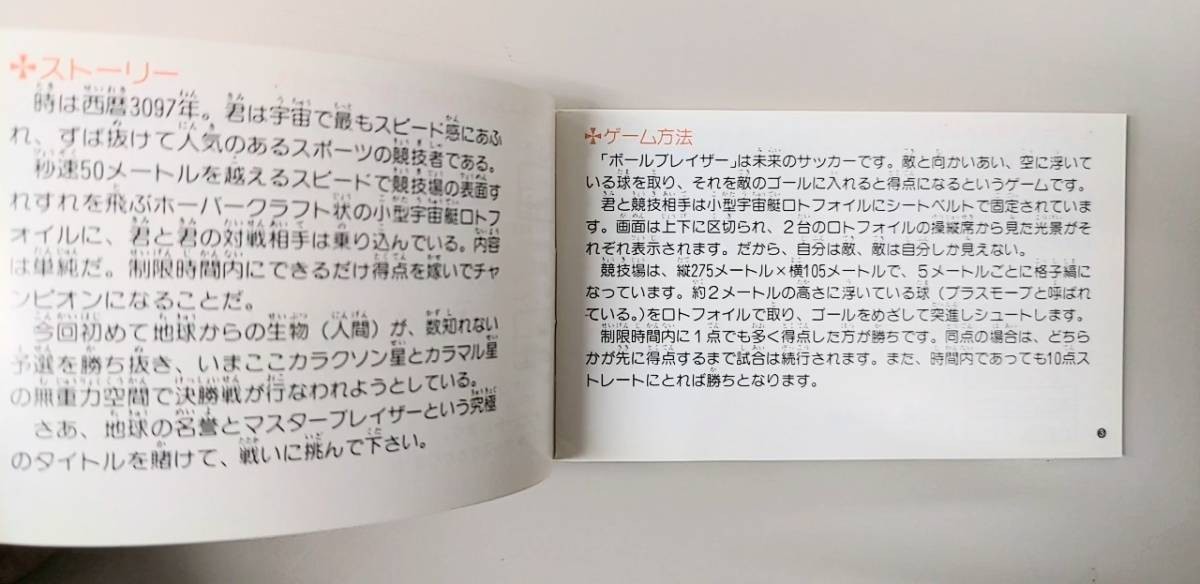 ストーリー
時は西暦3097年。君は宇宙で最もスピード感にあふ
れ、ずば抜けて人気のあるスポーツの競技者である。
秒速50メートルを越えるスピードで競技場の表面す
れすれを飛ぶホーバークラフト状の小型宇宙艇ロトフ
ォイルに、君と君の対戦相手は乗り込んでいる。内容
は単純だ。制限時間内にできるだけ得点を嫁いでチャ
ンピオンになることだ。
今回初めて地球からの生物（人間）が、数知れない
予選を勝ち抜き、いまここカラクソン星とカラマル星
の無重力空間で決勝戦が行なわれようとしている。
さあ、地球の名誉とマスターブレイザーという究極
のタイトルを賭けて、戦いに挑んで下さい。
ゲーム方法
「ボールブレイザー」は未来のサッカーです。敵と向かいあい、空に浮いて
いる球を取り、それを敵のゴールに入れると得点になるというゲームです。
君と競技相手は小型宇宙艇ロトフォイルにシートベルトで固定されていま
す。画面は上下に区切られ、2台のロトフォイルの操縦席から見た光景がそ
れぞれ表示されます。だから、自分は敵、敵は自分しか見えない。
競技場は、縦275メートル×横105メートルで、5メートルごとに格子縞に
なっています。約2メートルの高さに浮いている球（プラスモーブと呼ばれ
ている。）をロトフォイルで取り、ゴールをめざして突進しシュートします。
制限時間内に1点でも多く得点した方が勝ちです。同点の場合は、どちら
かが先に得点するまで試合は続行されます。また、時間内であっても10点ス
トレートにとれば勝ちとなります。
3